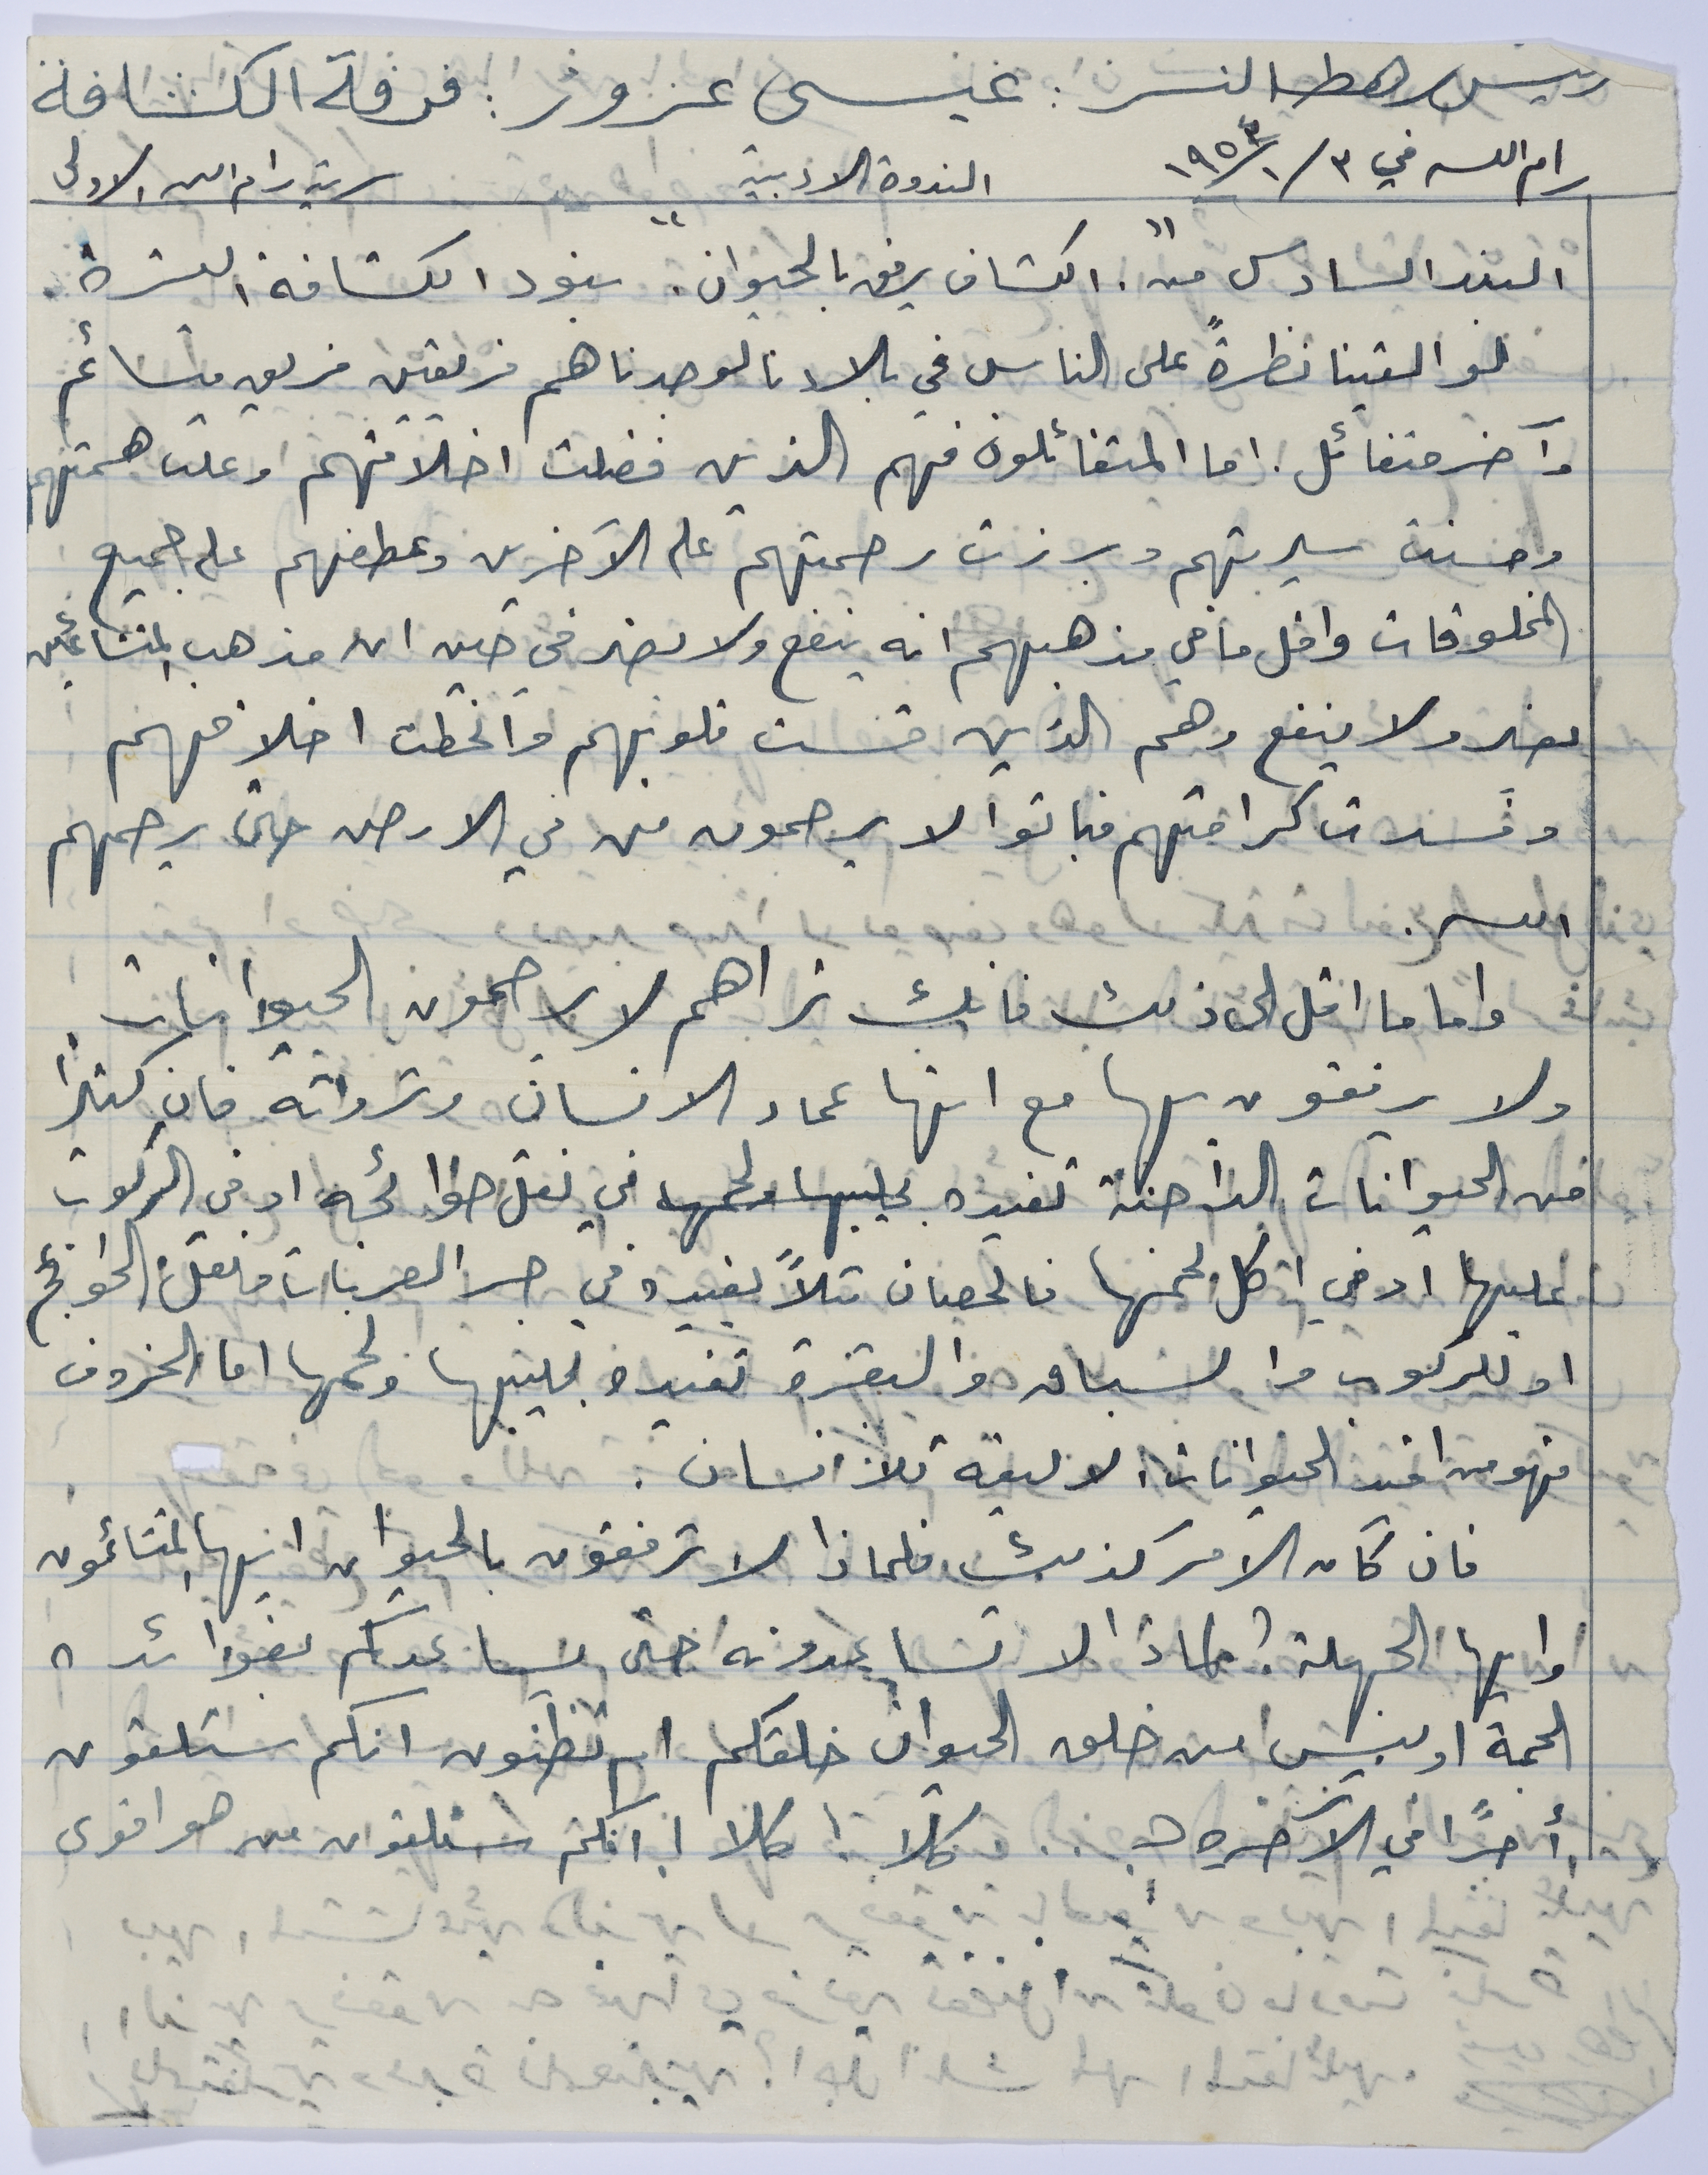 رئيس رهط النسر: عيسى عزوز: فرقة الكشافة
رام الله في ٣/١/١٩٥٣ الندوة الادبية سرية رام الله الاولى
البند السادس من "الكشاف يرفق بالحيوان". بنود الكشافة العشرة.
لو القينا نظرةً على الناس في بلادنا لوجدناهم فريقين فريق متشائم
وآخر متفائل. اما المتفائلون فهم الذين فضلت اخلاقهم وعلت همتهم
وحسنت سيرتهم وبرزت رحمتهم على الآخرين وعطفهم على جميع
المخلوقات واقل ما في مذهبهم انه ينفع ولا يضر في حين ان مذهب المتشائمين
يضر ولا ينفع وهم الذين قست قلوبهم وانحطت اخلاقهم
وفسدت كرامتهم فباتوا لا يرحمون من في الارض حتى يرحمهم
الله.
واما ما اقل الى ذلك فانك تراهم لا يرحمون الحيوانات
ولا يرفقون بها مع انها عماد الانسان وثرواته فان كثيرًا
من الحيوانات الداجنة تفيده بحليبها ولحمها في نقل حوائجه او في الركوب
عليها او في اكل لحمها فالحصان مثلاً يفيده في جر العربات ونقل الحوائج
او للركوب والسباق والبقرة تفيده بحليبها ولحمها اما الخروف
فهو من افيد الحيوانات الاليفة للانسان.
فان كان الأمر كذلك فلماذا لا ترفقون بالحيوان ايها المتشائمون
وايها الجهلة؟ لماذا لا تساعدونه حتى يساعدكم بفوائده
الجمة او ليس من خلق الحيوان خلقكم ام تظنون انكم ستلقون
أجرًا في الآخرة؟.. كلا! كلا! انكم ستلقون من هو اقوى